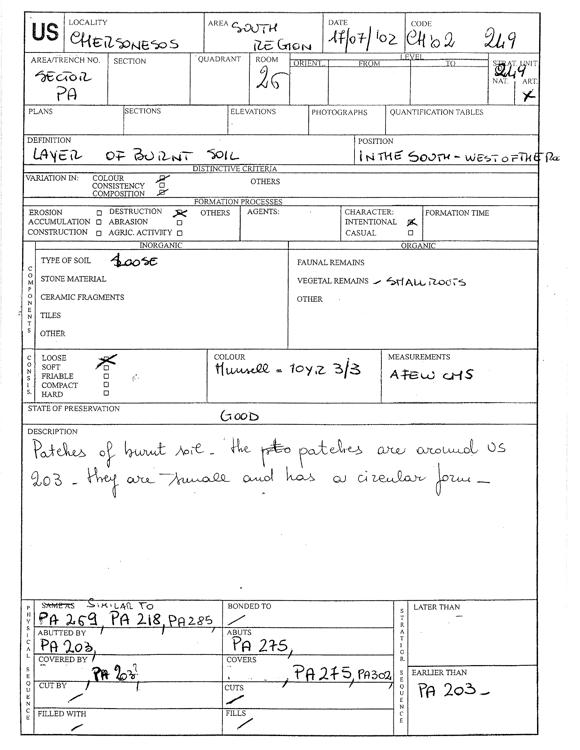 US
LOCALITY
CHERSONESOS
AREA SOUTH
REGION
DATE
17/07/'02
CODE
CH 02 249
AREA/TRENCH NO.
SECTOR
PA
SECTION
QUADRANT
ROOM
26
LEVEL
ORIENT. FROM TO
STRAT. UNIT
249
NAT. ART.
X
PLANS
SECTIONS
ELEVATIONS
PHOTOGRAPHS
QUANTIFICATION TABLES
DEFINITION
LAYER OF BURNT SOIL
POSITION
IN THE SOUTH-WEST OF THE
DISTINCTIVE CRITERIA
VARIATION IN: COLOUR
CONSISTENCY
COMPOSITION
OTHERS
FORMATION PROCESSES
EROSION DESTRUCTION OTHERS
ACCUMULATION ABRASION
CONSTRUCTION AGRIC. ACTIVITY
AGENTS:
CHARACTER:
INTENTIONAL
CASUAL
FORMATION TIME
COMPONENTS
INORGANIC
TYPE OF SOIL LOOSE
STONE MATERIAL
CERAMIC FRAGMENTS
TILES
OTHER
ORGANIC
FAUNAL REMAINS
VEGETAL REMAINS - SMALL ROOTS
OTHER
CONSIS.
LOOSE
SOFT
FRIABLE
COMPACT
HARD
COLOUR
Munsell = 10YR 3/3
MEASUREMENTS
A FEW CMS
STATE OF PRESERVATION
GOOD
DESCRIPTION
Patches of burnt soil - the patches are around US
203 - they are smale and has a circular form -
PHYSICAL SEQUENCE
SAME AS SIMILAR TO
PA 269, PA 218, PA 285
BONDED TO
/
ABUTTED BY
PA 203,
ABUTS
PA 275,
COVERED BY
PA 203?
COVERS
PA 275, PA 302
CUT BY
/
CUTS
/
FILLED WITH
/
FILLS
/
STRATIGR. SEQUENCE
LATER THAN
-
EARLIER THAN
PA 203 -